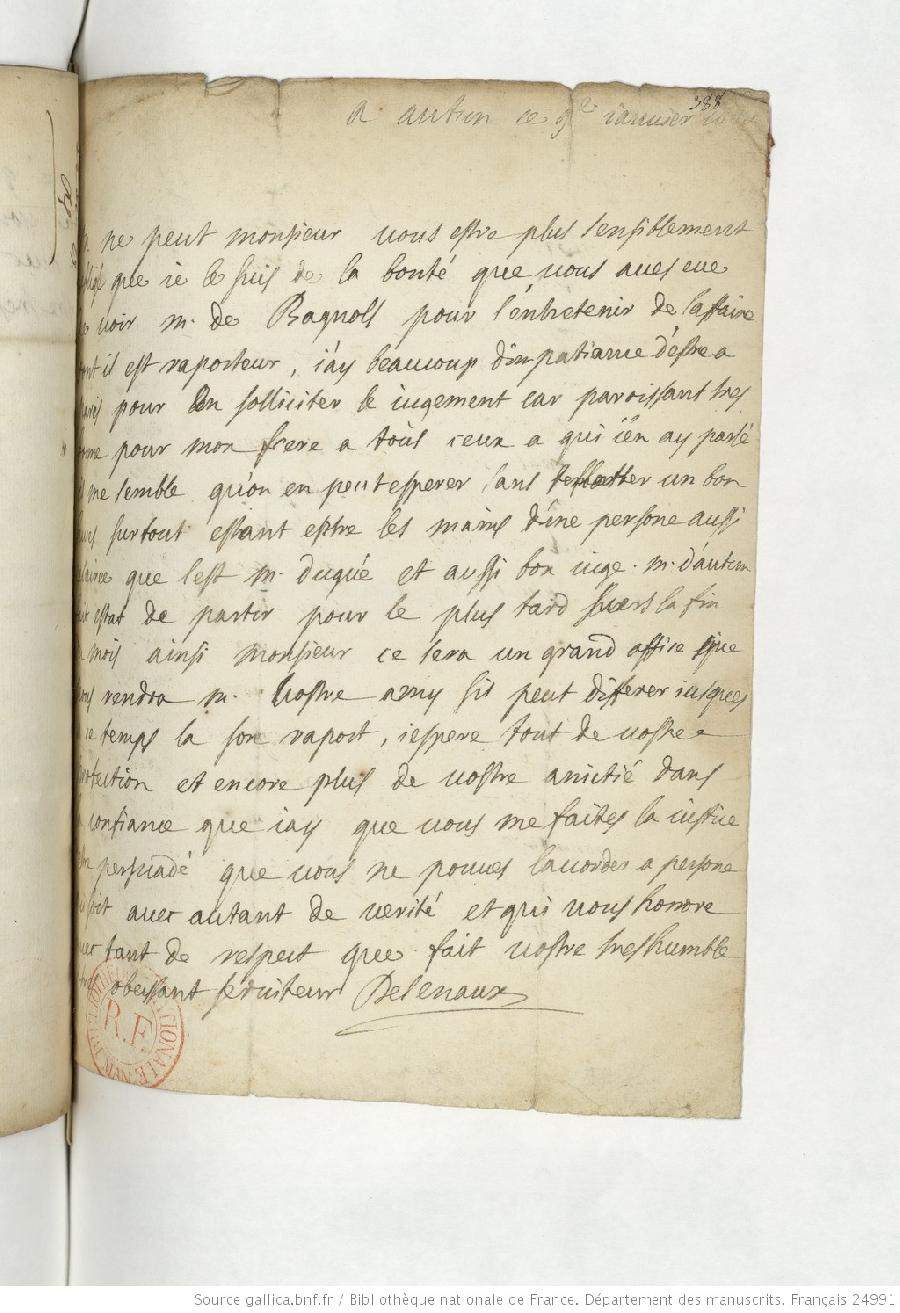 388
a autun ce 9e ianuier
ne peut monsieur uous estre plus sensiblement
que ie le suis de la bonté que uous aues eue
uoir m. de Bagnols pour l'entretenir de laffaire
il est raporteur, i'ay beaucoup d'impatiance d'estre a
pour en solliciter le iugement car paroissant tres
pour mon frere a tous ceux a qui i'en ay parlé
me semble qu'on en peut esperer sans se flatter un bon
surtout estant estre les mains d'une persone aussi
que l'est m. dugué et aussi bon iuge. m. d'autun
estat de partir pour le plus tard uers la fin
mois ainsi monsieur ce sera un grand office que
rendra m. uostre amy sil peut differer iusques
ce temps la son raport, i'espere tout de uostre
et encore plus de uostre amictié dans
confiance que i'ay que uous me faites la iustice
persuadé que uous ne pouues l'accorder a persone
soit auec autant de uerité et qui uous honore
tant de respect que fait uostre treshumble
obeissant seruiteur Desenaux
R.F.
Source gallica.bnf.fr / Bibliothèque nationale de France. Département des manuscrits. Français 24991